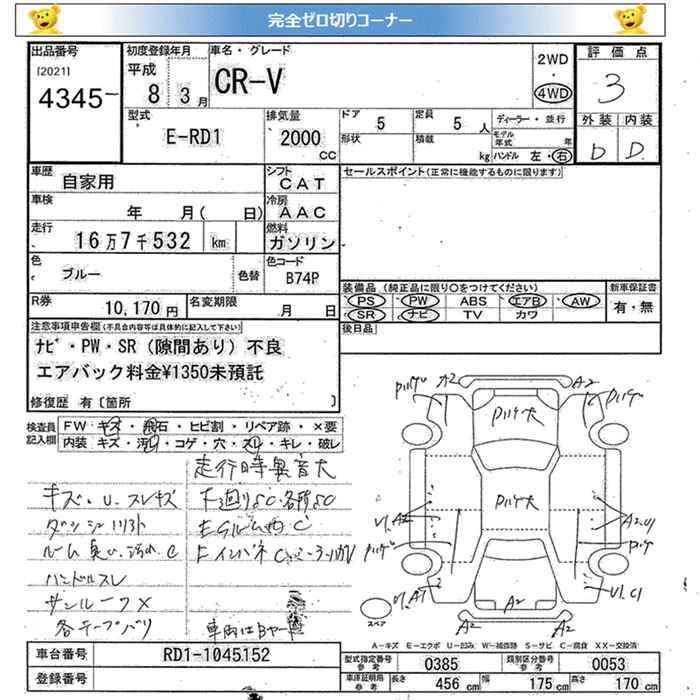 完全ゼロ切りコーナー
出品番号
[2021]
4345
初度登録年月
平成
8 3月
車名・グレード
CR-V
2WD
4WD
評価点
3
型式
E-RD1
排気量
2000
CC
ドア
5
定員
5人
ディーラー・並行
形状
積載
kg
モデル年式
年
ハンドル 左・右
外装 内装
D D
車歴
自家用
シフト
CAT
セールスポイント(正常に機能するものに限ります)
車検
年 月( 日)
冷房
AAC
走行
16万7千532 km
燃料
ガソリン
色
ブルー
色替
色コード
B74P
装備品(純正品に限り○をつけてください)
新車保証書
PS PW ABS エアB AW
有・無
SR ナビ TV カワ
R券
10,170円
名変期限
月 日
後日品
注意事項申告欄(不具合内容等は具体的に記入して下さい)
ナビ・PW・SR(隙間あり)不良
エアバック料金¥1350未預託
修復歴 有〔箇所 〕
検査員記入欄
FW キズ・飛石・ヒビ割・リペア跡・×要
内装 キズ・汚れ・コゲ・穴・スレ・キレ・破レ
走行時異音大
キズ・U.スレキズ
下廻りSC 各所SC
Eルーム内C
ルーム臭い、汚れC
ハンドルスレ
サンルーフX
各テープバリ
A2
A2
A2
A2
A2
スペア
A-キズ E-エクボ U-凹み W-補修跡 S-サビ C-腐食 XX-交換済
車台番号
RD1-1045152
登録番号
型式指定番号
参考
0385
類別区分番号
参考
0053
車庫証明用
参考
長さ
456 cm
幅
175 cm
高さ
170 cm